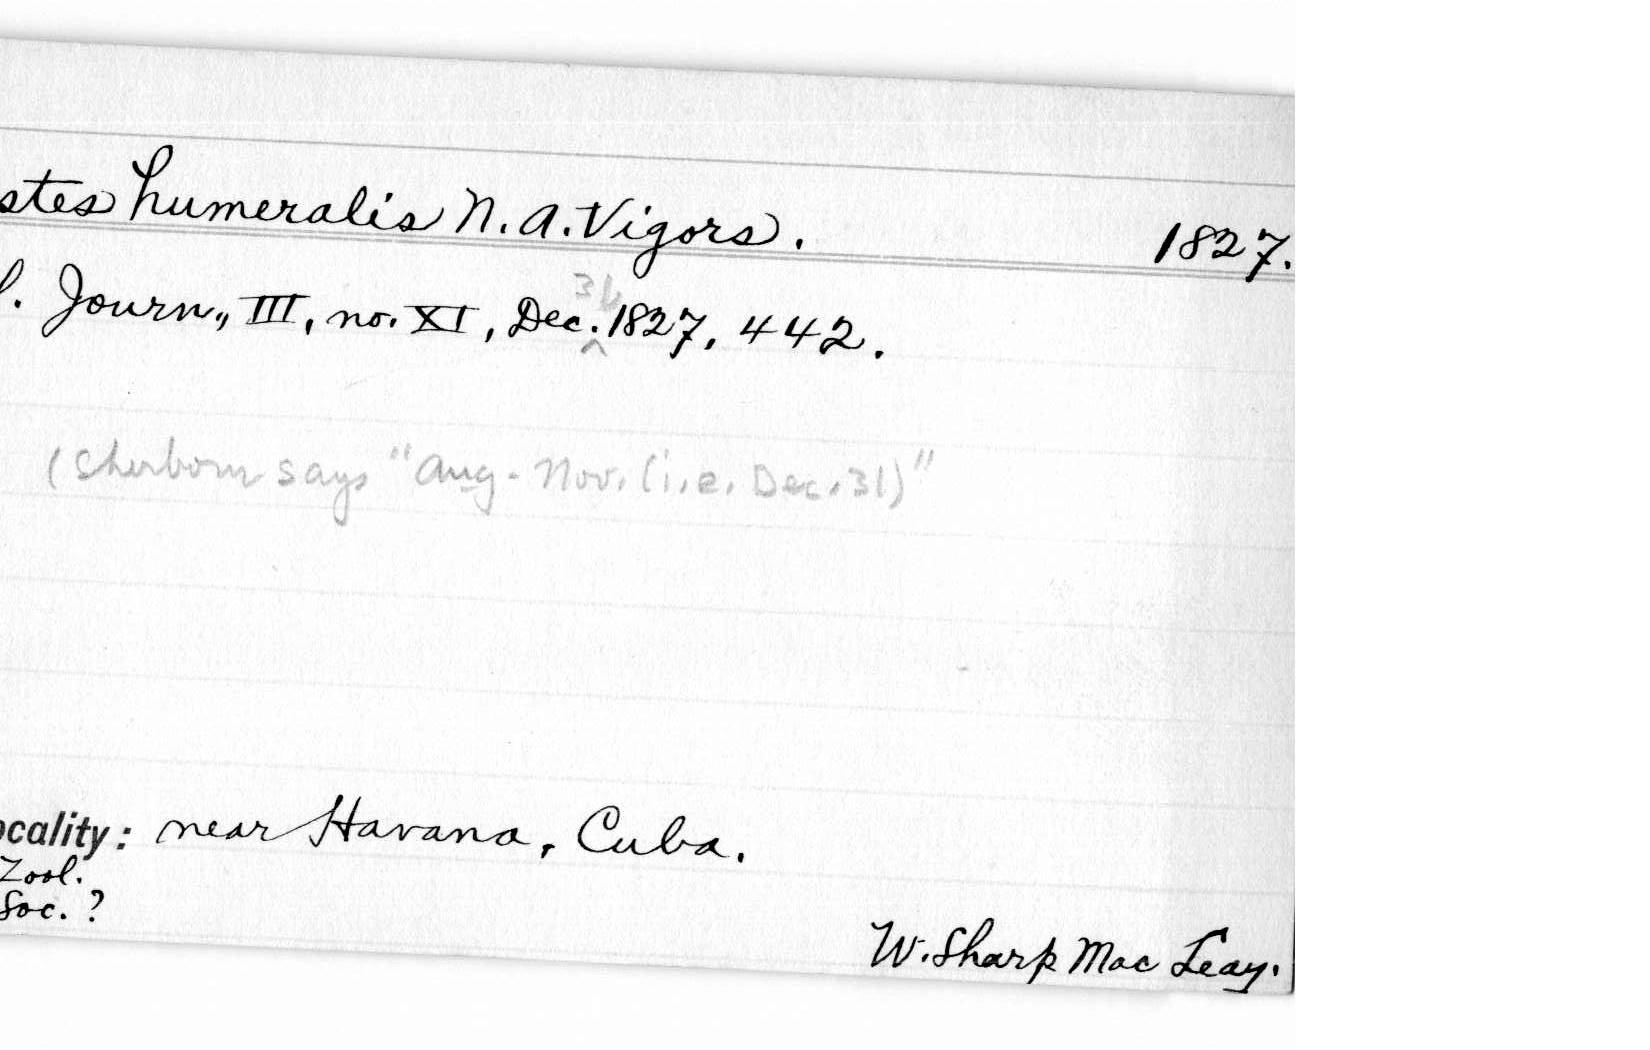 stes humeralis N. A. Vigors. 1827.
l. Journ., III, no. XI, Dec. 31, 1827, 442.
(Sherborn says "Aug-Nov. (i.e. Dec. 31)"
ocality: near Havana, Cuba.
Zool.
Soc. ?
W. Sharp Mac Leay.